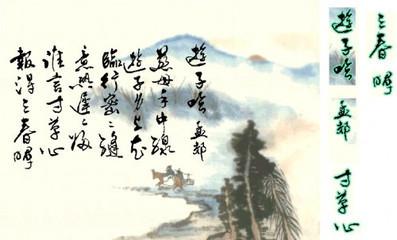 遊子吟 孟郊
慈母手中線
遊子身上衣
臨行密々縫
意恐遲々歸
誰言寸草心
報得三春暉
三春暉
寸草心
遊子吟
孟郊